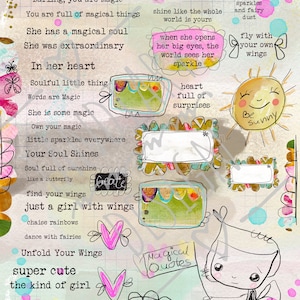 Darling, you are magic
You are full of magical things
She has a magical soul
She was extraordinary
In her heart
Soulful little thing
Words are Magic
She is some magic
Own your magic
little sparkled everywhere
Your Soul Shines
Soul full of sunshine
like a butterfly
find your wings
just a girl with wings
chaise rainbows
dance with fairies
Unfold Your Wings
super cute
the kind of girl
shine like the whole
world is yours
sparkles
and fairy
dust
when she opens
her big eyes, the
world sees her
sparkle
fly with
your own
wings
heart
full of
surprises
Be
Sunny
Magical
Quotes